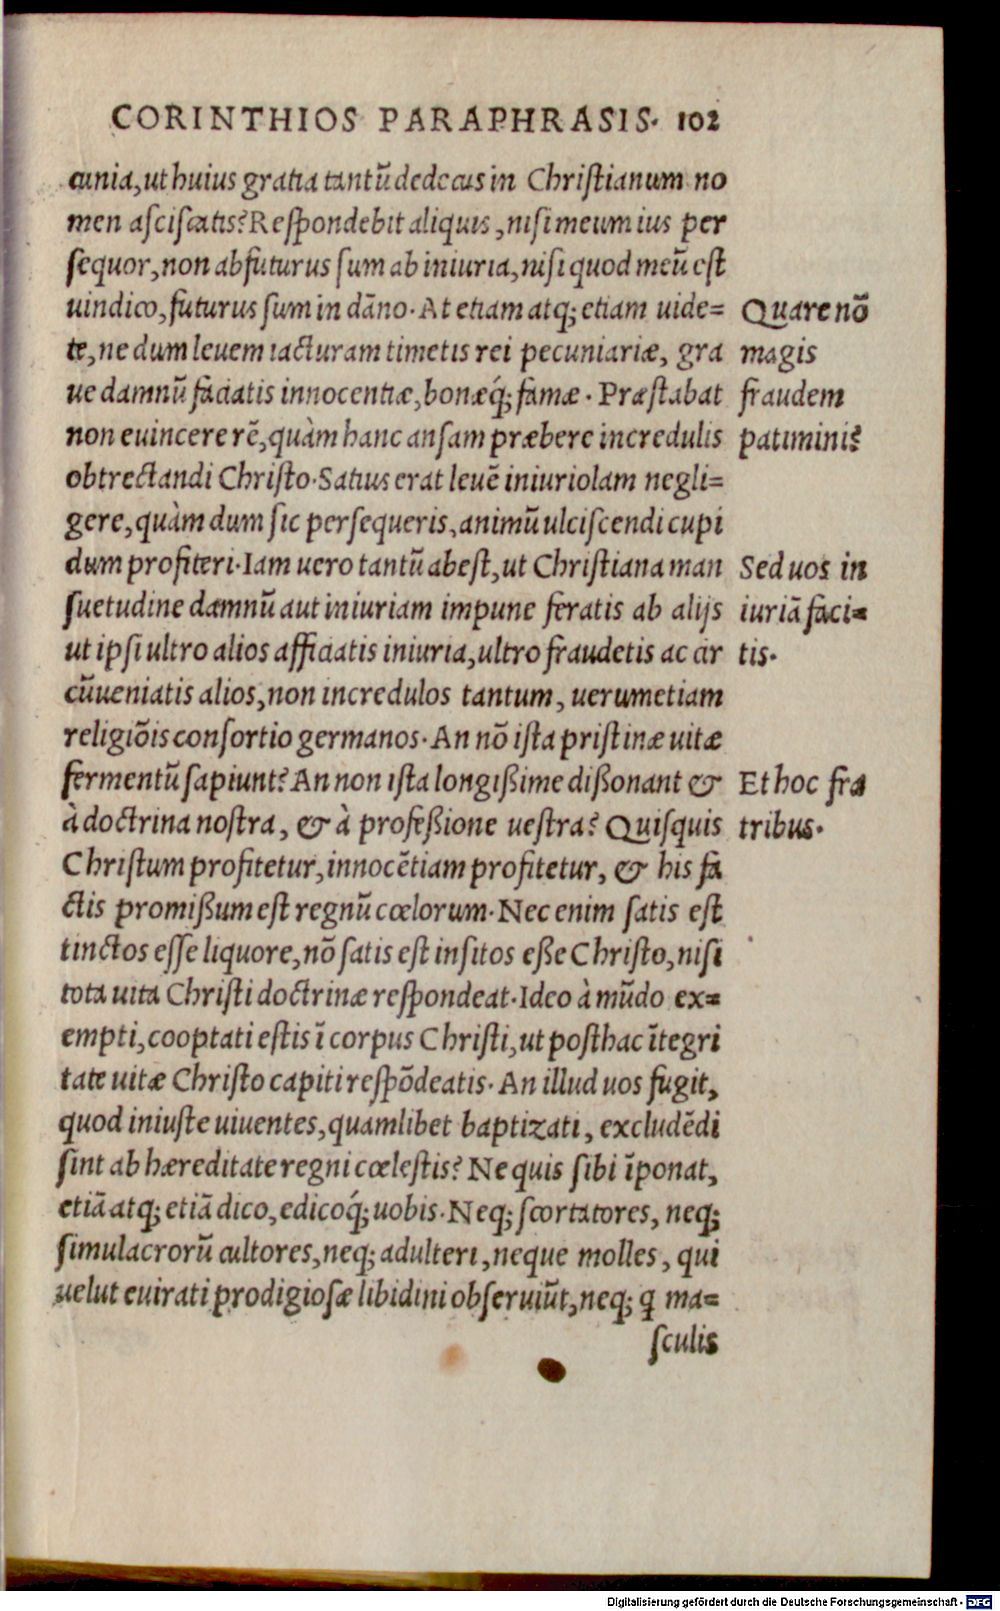 CORINTHIOS PARAPHRASIS. 102
cunia, ut huius gratia tantũ dedecus in Christianum no
men asciscatis? Respondebit aliquis, nisi meum ius per
sequor, non abfuturus sum ab iniuria, nisi quod meũ est
uindico, futurus sum in dãno. At etiam atq; etiam uide=
te, ne dum leuem iacturam timetis rei pecuniariæ, gra
ue damnũ faciatis innocentiæ, bonæq́; famæ. Præstabat
non euincere rẽ, quàm hanc ansam præbere incredulis
obtrectandi Christo. Satius erat leuẽ iniuriolam negli=
gere, quàm dum sic persequeris, animũ ulciscendi cupi
dum profiteri. Iam uero tantũ abest, ut Christiana man
suetudine damnũ aut iniuriam impune feratis ab alijs
ut ipsi ultro alios afficiatis iniuria, ultro fraudetis ac cir
cũueniatis alios, non incredulos tantum, uerumetiam
religiõis consortio germanos. An nõ ista pristinæ uitæ
fermentũ sapiunt? An non ista longißime dißonant &
à doctrina nostra, & à profeßione uestra? Quisquis
Christum profitetur, innocẽtiam profitetur, & his fa
ctis promißum est regnũ cœlorum. Nec enim satis est
tinctos esse liquore, nõ satis est insitos eße Christo, nisi
tota uita Christi doctrinæ respondeat. Ideo à mũdo ex=
empti, cooptati estis ĩ corpus Christi, ut posthac ĩtegri
tate uitæ Christo capiti respõdeatis. An illud uos fugit,
quod iniuste uiuentes, quamlibet baptizati, excludẽdi
sint ab hæreditate regni cœlestis? Ne quis sibi ĩponat,
etiã atq; etiã dico, edicoq́; uobis. Neq; scortatores, neq;
simulacrorũ cultores, neq; adulteri, neque molles, qui
uelut euirati prodigiosæ libidini obseruiũt, neq; q ma=
sculis
Quare nõ
magis
fraudem
patimini?
Sed uos in
iuriã faci=
tis.
Et hoc fra
tribus.
Digitalisierung gefördert durch die Deutsche Forschungsgemeinschaft - DFG